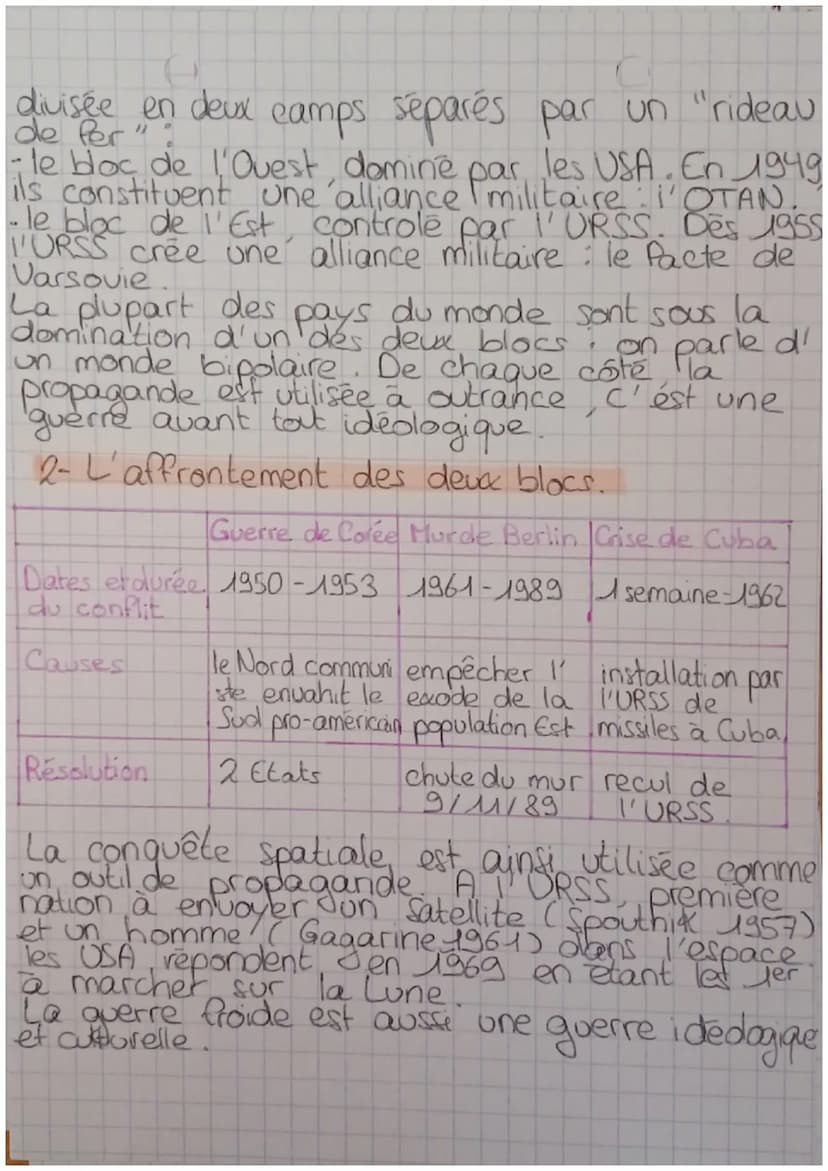 divisée en deux camps séparés par un "rideau
de fer" :
- le bloc de l'Ouest, dominé par les USA. En 1949
ils constituent une alliance militaire : l'OTAN.
- le bloc de l'Est, controlé par l'URSS. Dès 1955
l'URSS crée une alliance militaire : le Pacte de
Varsovie.
La plupart des pays du monde sont sous la
domination d'un des deux blocs : on parle d'
un monde bipolaire. De chaque côté, la
propagande est utilisée à outrance, c'est une
guerre avant tout idéologique.
2- L'affrontement des deux blocs.
Guerre de Corée Mur de Berlin Crise de Cuba
Dates et durée du conflit 1950-1953 1961-1989 1 semaine-1962
Causes
le Nord communi empêcher l' installation par
ste envahit le exode de la l'URSS de
Sud pro-américain population Est missiles à Cuba
Résolution 2 Etats chute du mur recul de
9/11/89 l'URSS.
La conquête spatiale est ainsi utilisée comme
un outil de propagande. A l'URSS, première
nation à envoyer un satellite (Spouthik 1957)
et un homme (Gagarine 1961) dans l'espace
les USA répondent en 1969 en étant les 1er
à marcher sur la Lune.
La guerre froide est aussi une guerre idéologique
et culturelle.